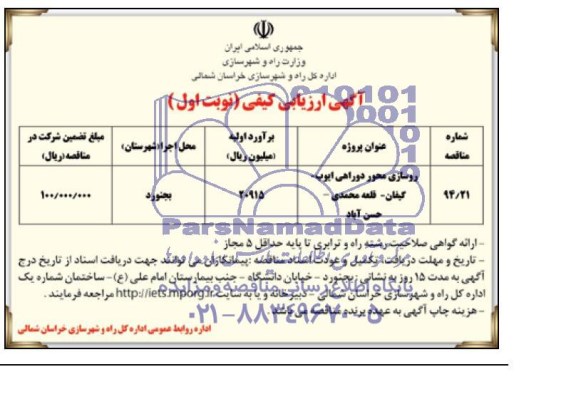 جمهوری اسلامی ایران
وزارت راه و شهرسازی
اداره کل راه و شهرسازی خراسان شمالی
آگهی ارزیابی کیفی (نوبت اول)
شماره مناقصه
عنوان پروژه
برآورد اولیه (میلیون ریال)
محل اجرا (شهرستان)
مبلغ تضمین شرکت در مناقصه (ریال)
۹۴/۲۱
روسازی محور دوراهی ایوب-
گیفان- قلعه محمدی -
حسن آباد
۲۰۹۱۵
بجنورد
۱۰۰/۰۰۰/۰۰۰
ParsNamadData
- ارائه گواهی صلاحیت رشته راه و ترابری تا پایه حداقل ۵ مجاز
- تاریخ و مهلت دریافت، تکمیل و عودت اسناد مناقصه :پیمانکاران می توانند جهت دریافت اسناد از تاریخ درج
آگهی به مدت ۱۵ روز به نشانی : بجنورد - خیابان دانشگاه - جنب بیمارستان امام علی (ع)- ساختمان شماره یک
اداره کل راه و شهرسازی خراسان شمالی - دبیرخانه و یا به سایت http://iets.mporg.ir مراجعه فرمایند .
- هزینه چاپ آگهی به عهده برنده مناقصه می باشد .
پایگاه اطلاع رسانی مناقصه و مزایده
۰۲۱-۸۸۳۴۹۶۷۰-۵
اداره روابط عمومی اداره کل راه و شهرسازی خراسان شمالی